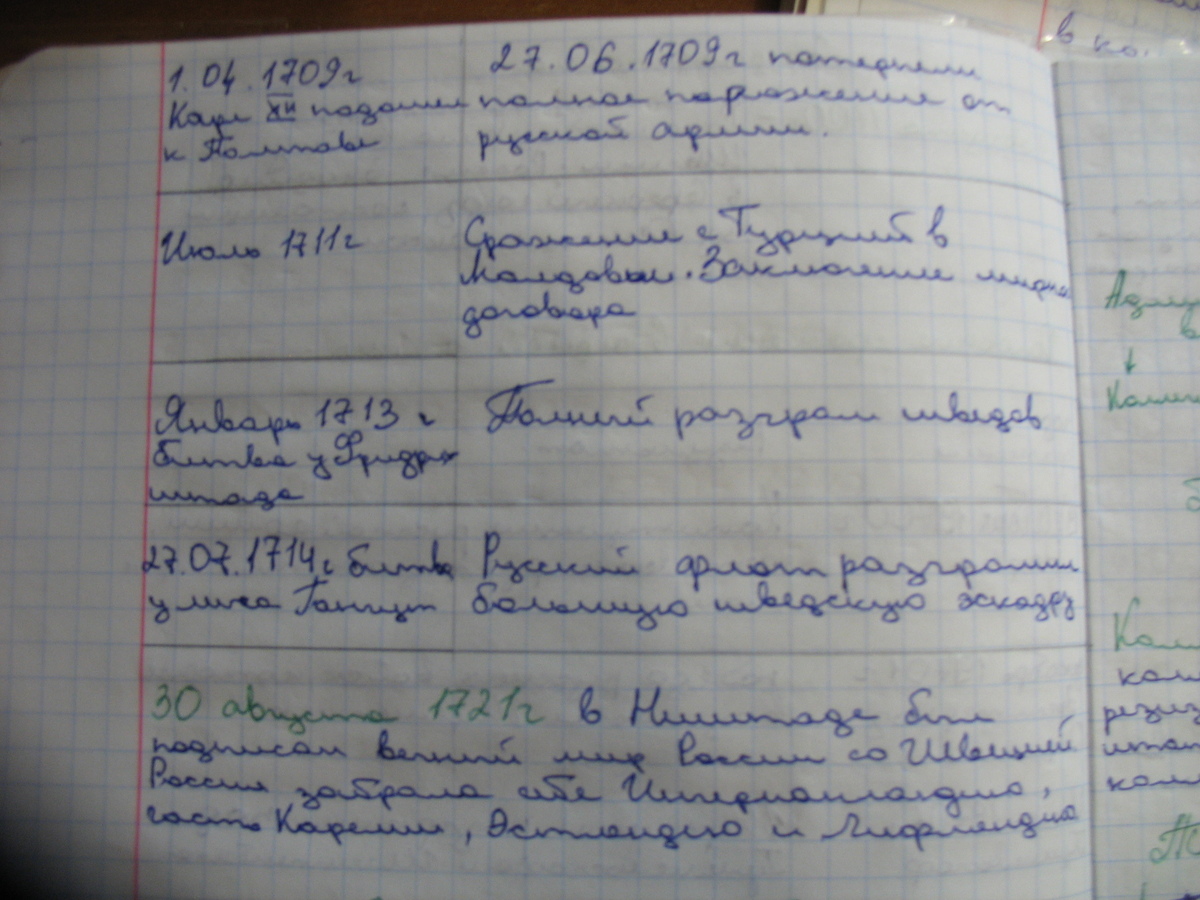 1.04.1709г
Карл XII подошел
к Полтаве
27.06.1709г потерпели
полное поражение от
русской армии.
Июль 1711г
Сражение с Турцией в
Молдовии. Заключение мирна
договора
Январь 1713 г
битва у Фридрих
штада
Полный разгром шведов
27.07.1714г битва
у мыса Гангут
Русский флот разгромил
большую шведскую эскадру
30 августа 1721г в Ништаде был
подписан вечный мир России со Швецией
Россия забрала себе Ингерманландию,
часть Карелии, Эстляндию и Лифляндию
в ко.
↓